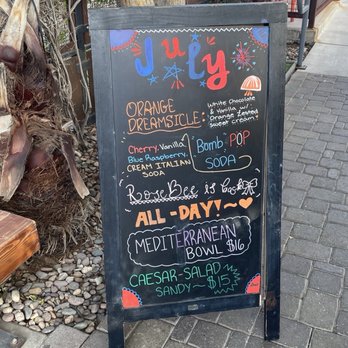 July
ORANGE
DREAMSICLE:
White Chocolate
& Vanilla w/
Orange Zested
Sweet Cream
Cherry, Vanilla,
Blue Raspberry
CREAM ITALIAN
SODA
Bomb POP
SODA
RoseBee is back
ALL-DAY!~
MEDITERRANEAN
BOWL $16
CAESAR-SALAD
SANDY~ $15